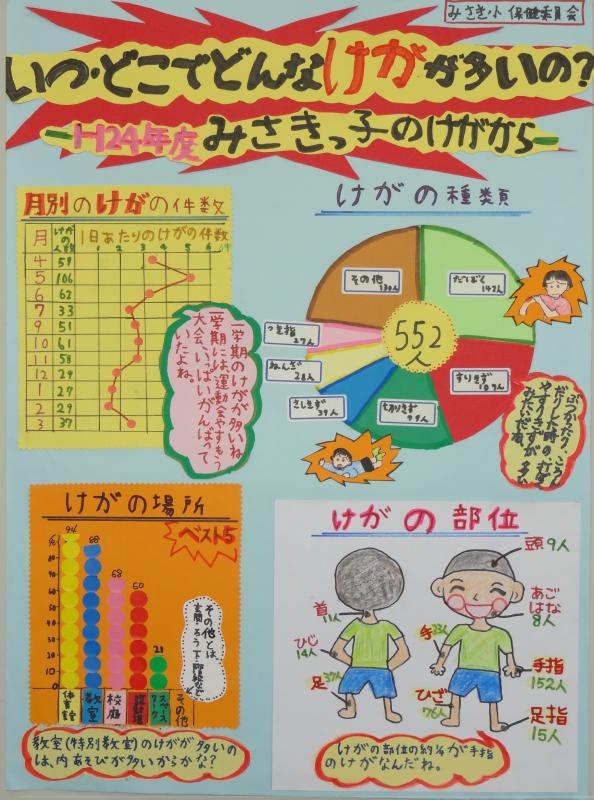 みさき小 保健委員会
いつ・どこでどんなけがが多いの?
H24年度 みさきっ子のけがから
月別のけがの件数
月 けがの人数 1日あたりのけがの件数
1 2 3 4 5 6
4 59
5 106
6 62
7 33
9 51
10 61
11 58
12 29
1 27
2 29
3 37
一学期のけがが多いね
一学期には、運動会やすもう
大会、いっぱいがんばって
いたよね。
けがの種類
その他
130人
だぼく
142人
つき指
27人
ねんざ
28人
さしきず
39人
切りきず
79人
すりきず
107人
552
人
ぶつかったり、ころん
だりした時の、だぼく
やすりきずが多い
みたいだね。
けがの場所
ベスト5
%
94
88
68
60
21
90
80
70
60
50
40
30
20
10
0
体育館
教室
校庭
ワークスペース
その他
その他とは、
玄関・ろう下・階段など
教室(特別教室)のけがが多いの
は、内あそびが多いからかな?
けがの部位
頭 9人
首
11人
あご
はな
8人
ひじ
14人
手 23人
手指
152人
足 37人
ひざ
76人
足指
15人
けがの部位の約¼が手指
のけがなんだね。